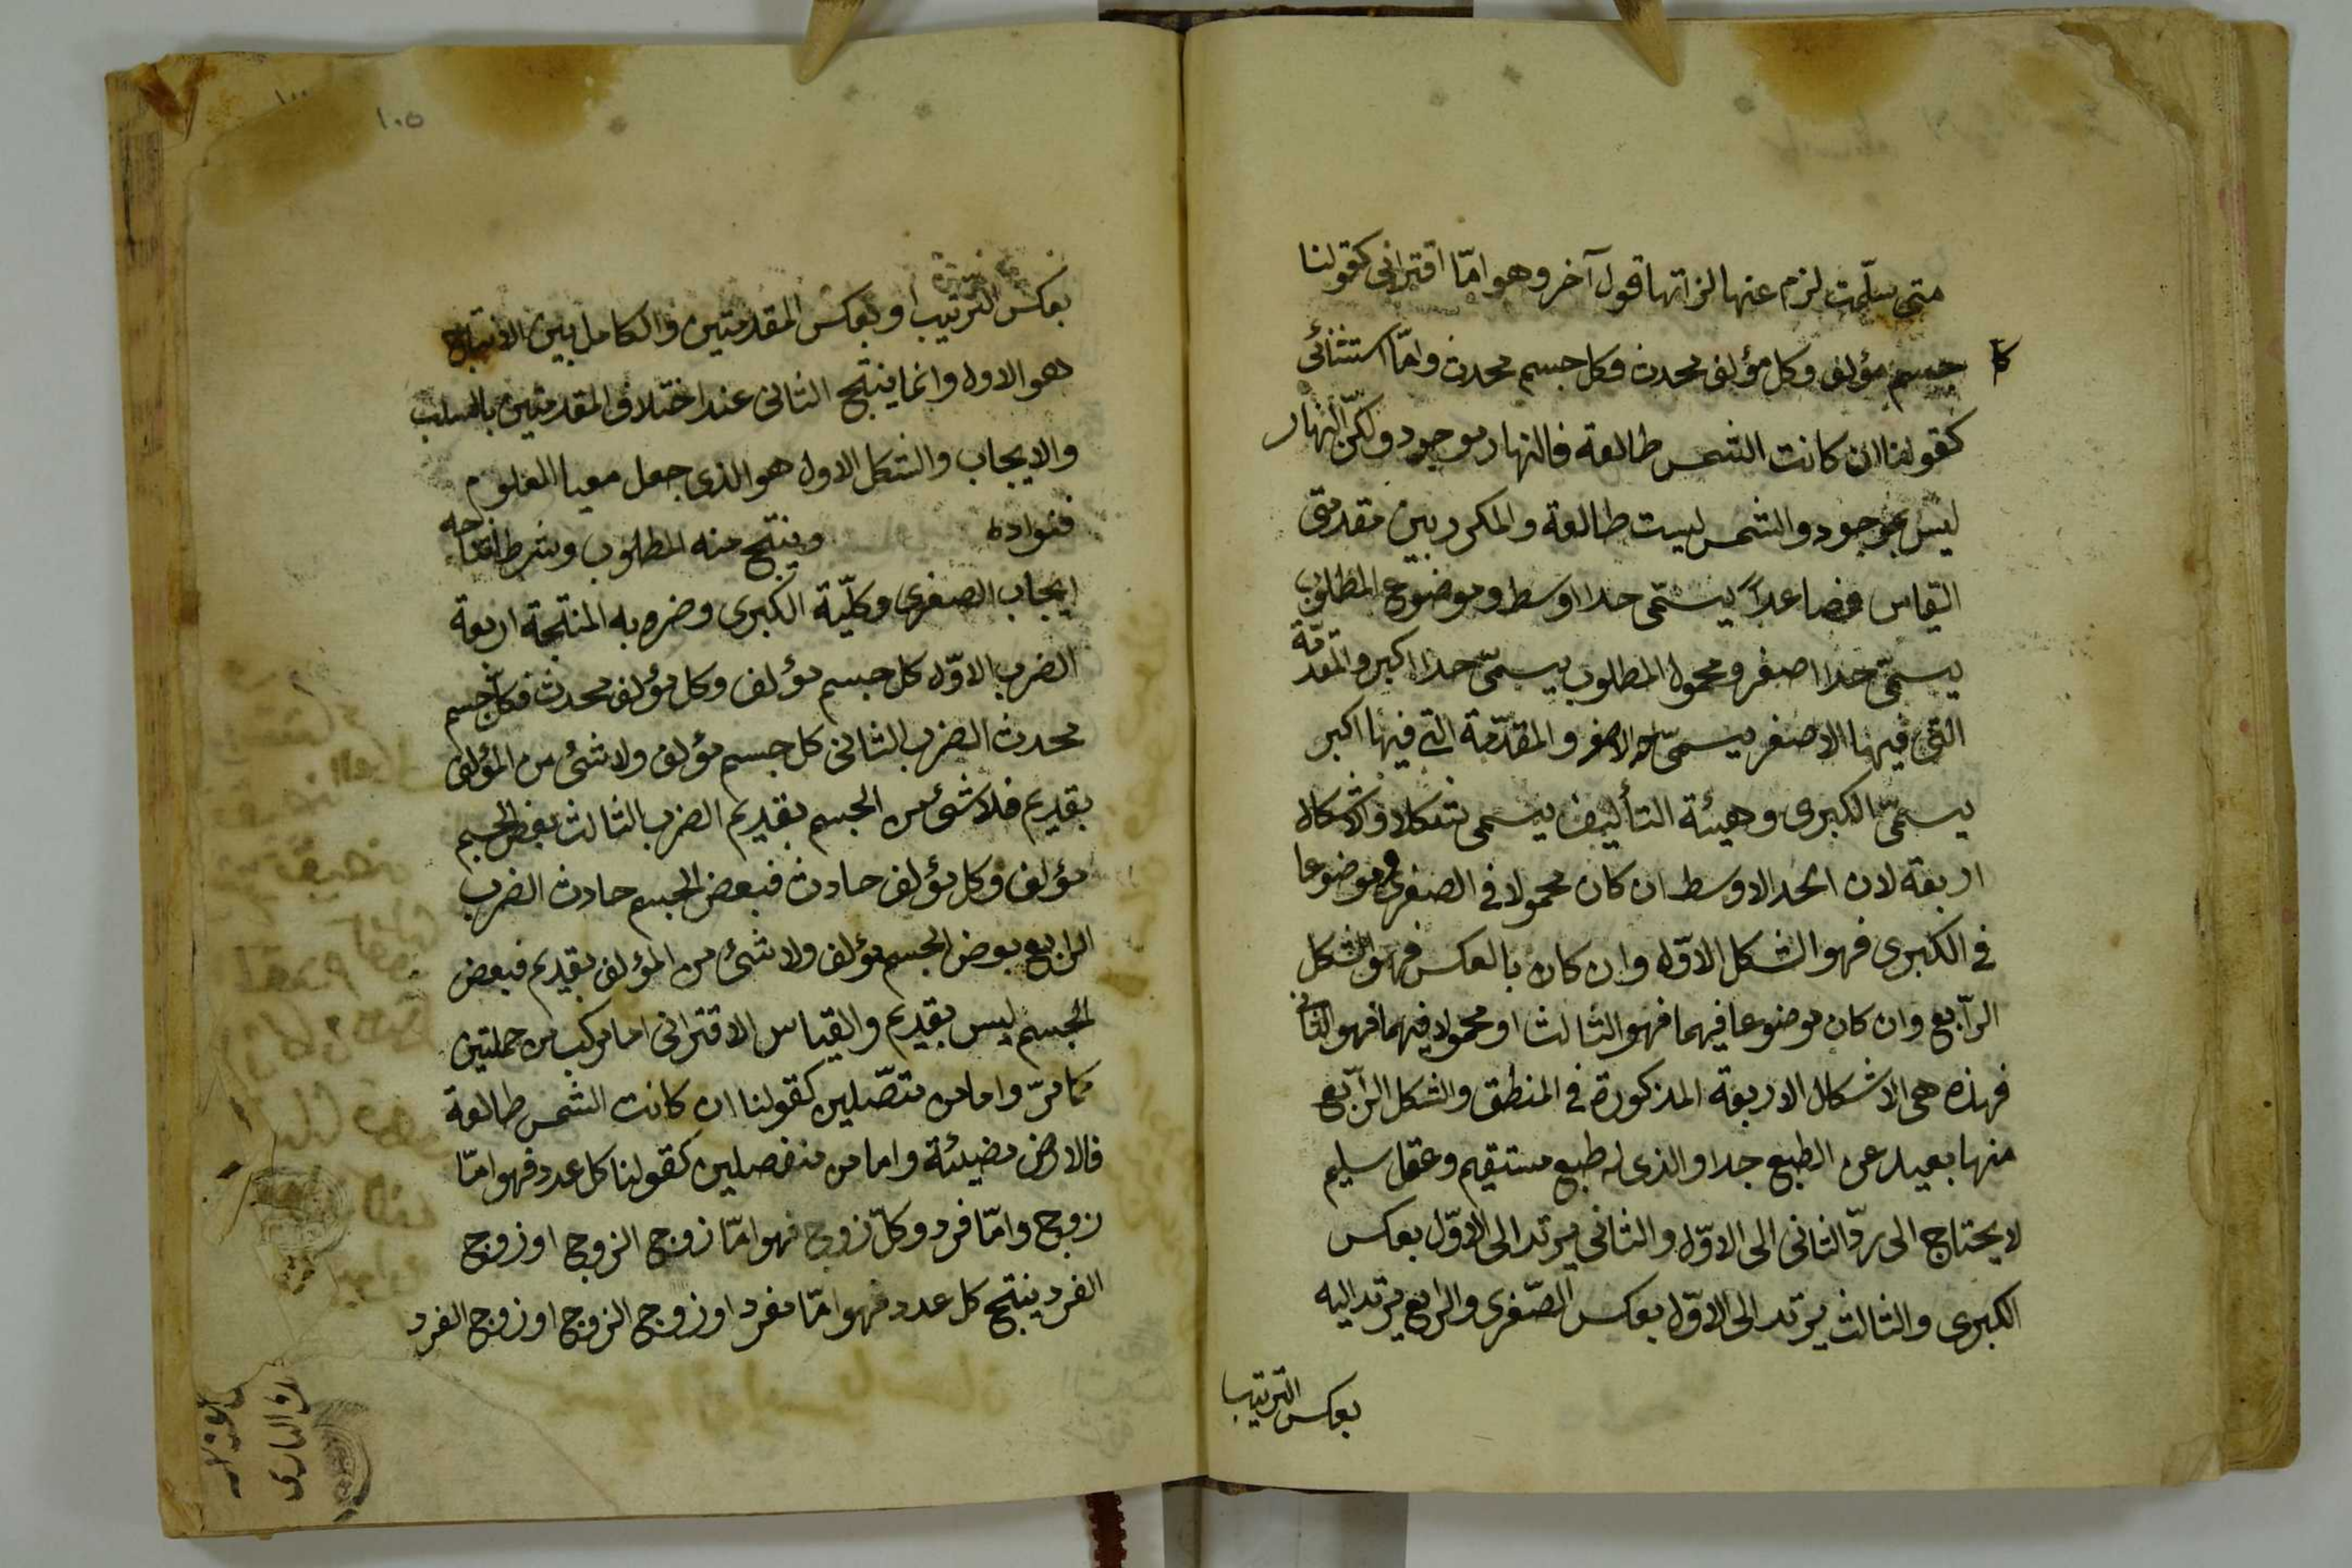 متى سلّمت لزم عنها لذاتها قول آخر وهو امّا اقترانى كقولنا
كل جسم مؤلف وكل مؤلف محدث فكل جسم محدث وامّا استثنائى
كقولنا ان كانت الشمس طالعة فالنهار موجود ولكنّ النهار
ليس بموجود والشمس ليست طالعة والمكرر بين مقدمتى
القياس فصاعدًا يسمّى حدا اوسط وموضوع المطلوب
يسمّى حدا اصغر ومحمول المطلوب يسمّى حدا اكبر والمقدّمة
التى فيها الاصغر يسمّى الاصغر والمقدّمة التى فيها اكبر
يسمّى الكبرى وهيئة التأليف يسمى شكلا والاشكال
اربعة لان الحد الاوسط ان كان محمولا فى الصغرى وموضوعا
فى الكبرى فهو الشكل الاوّل وان كان بالعكس فهو الشكل
الرّابع وان كان موضوعا فيهما فهو الثالث او محمولا فيهما فهو الثانى
فهذه هى الاشكال الاربعة المذكورة فى المنطق والشكل الرّابع
منها بعيد عن الطبع جدا والذى له طبع مستقيم وعقل سليم
لا يحتاج الى ردّ الثانى الى الاوّل والثانى يرتد الى الاوّل بعكس
الكبرى والثالث يرتد الى الاوّل بعكس الصّغرى والرابع يرتد اليه
بعكس الترتيب
١٠٥
بعكس الترتيب او بعكس المقدمتين والكامل بين الانتاج
هو الاول وانما ينتج الثانى عند اختلاف المقدمتين بالسلب
والايجاب والشكل الاول هو الذى جعل معيا العلوم
فنواده وينتج منه المطلوب وشرط انتاجه
ايجاب الصغرى وكلّية الكبرى وضروبه المنتجة اربعة
الضرب الاوّل كل جسم مؤلف وكل مؤلف محدث فكل جسم
محدث الضرب الثانى كل جسم مؤلف ولا شئ من المؤلف
بقديم فلا شئ من الجسم بقديم الضرب الثالث بعض الجسم
مؤلف وكل مؤلف حادث فبعض الجسم حادث الضرب
الرابع بعض الجسم مؤلف ولا شئ من المؤلف بقديم فبعض
الجسم ليس بقديم والقياس الاقترانى اما مركب من حمليتين
كما مرّ واما من متصّلين كقولنا ان كانت الشمس طالعة
فالارض مضيئة واما من منفصلين كقولنا كل عدد فهو امّا
زوج وامّا فرد وكلّ زوج فهو امّا زوج الزوج او زوج
الفرد ينتج كل عدد فهو امّا مفرد او زوج الزوج او زوج الفرد